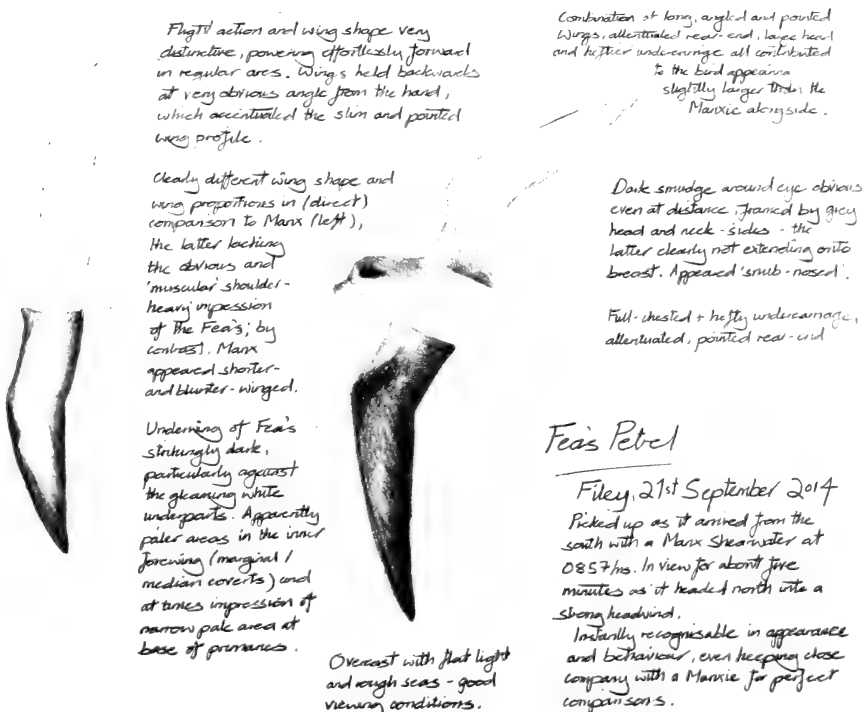 Flight action and wing shape very
distinctive, powering effortlessly forward
in regular arcs. Wings held backwards
at very obvious angle from the hand,
which accentuated the slim and pointed
wing profile.
Clearly different wing shape and
wing proportions in (direct)
comparison to Manx (left),
the latter lacking
the obvious and
'muscular' shoulder-
heavy impression
of the Fea's; by
contrast, Manx
appeared shorter-
and blunter-winged.
Underwing of Fea's
strikingly dark,
particularly against
the gleaming white
underparts. Apparently
paler areas in the inner
forewing (marginal/
median coverts) and
at times impression of
narrow pale area at
base of primaries.
Overcast with flat light
and rough seas - good
viewing conditions.
Combination of long, angled and pointed
wings, attenuated rear-end, large head
and heftier undercarriage all contributed
to the bird appearing
slightly larger than the
Manxie alongside.
Dark smudge around eye obvious
even at distance, framed by grey
head and neck-sides - the
latter clearly not extending onto
breast. Appeared 'snub-nosed'.
Full-chested + hefty undercarriage,
attenuated, pointed rear-end
Fea's Petrel
Filey, 21st September 2014
Picked up as it arrived from the
south with a Manx Shearwater at
0857hs. In view for about five
minutes as it headed north into a
strong headwind.
Instantly recognisable in appearance
and behaviour, even keeping close
company with a Manxie for perfect
comparisons.